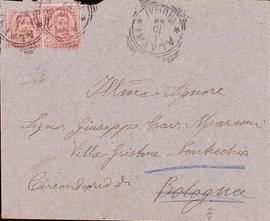 Illmo Signore
Signor Giuseppe Cav. Marconi
Villa Griffone - Pontecchio
Circondario di Bologna